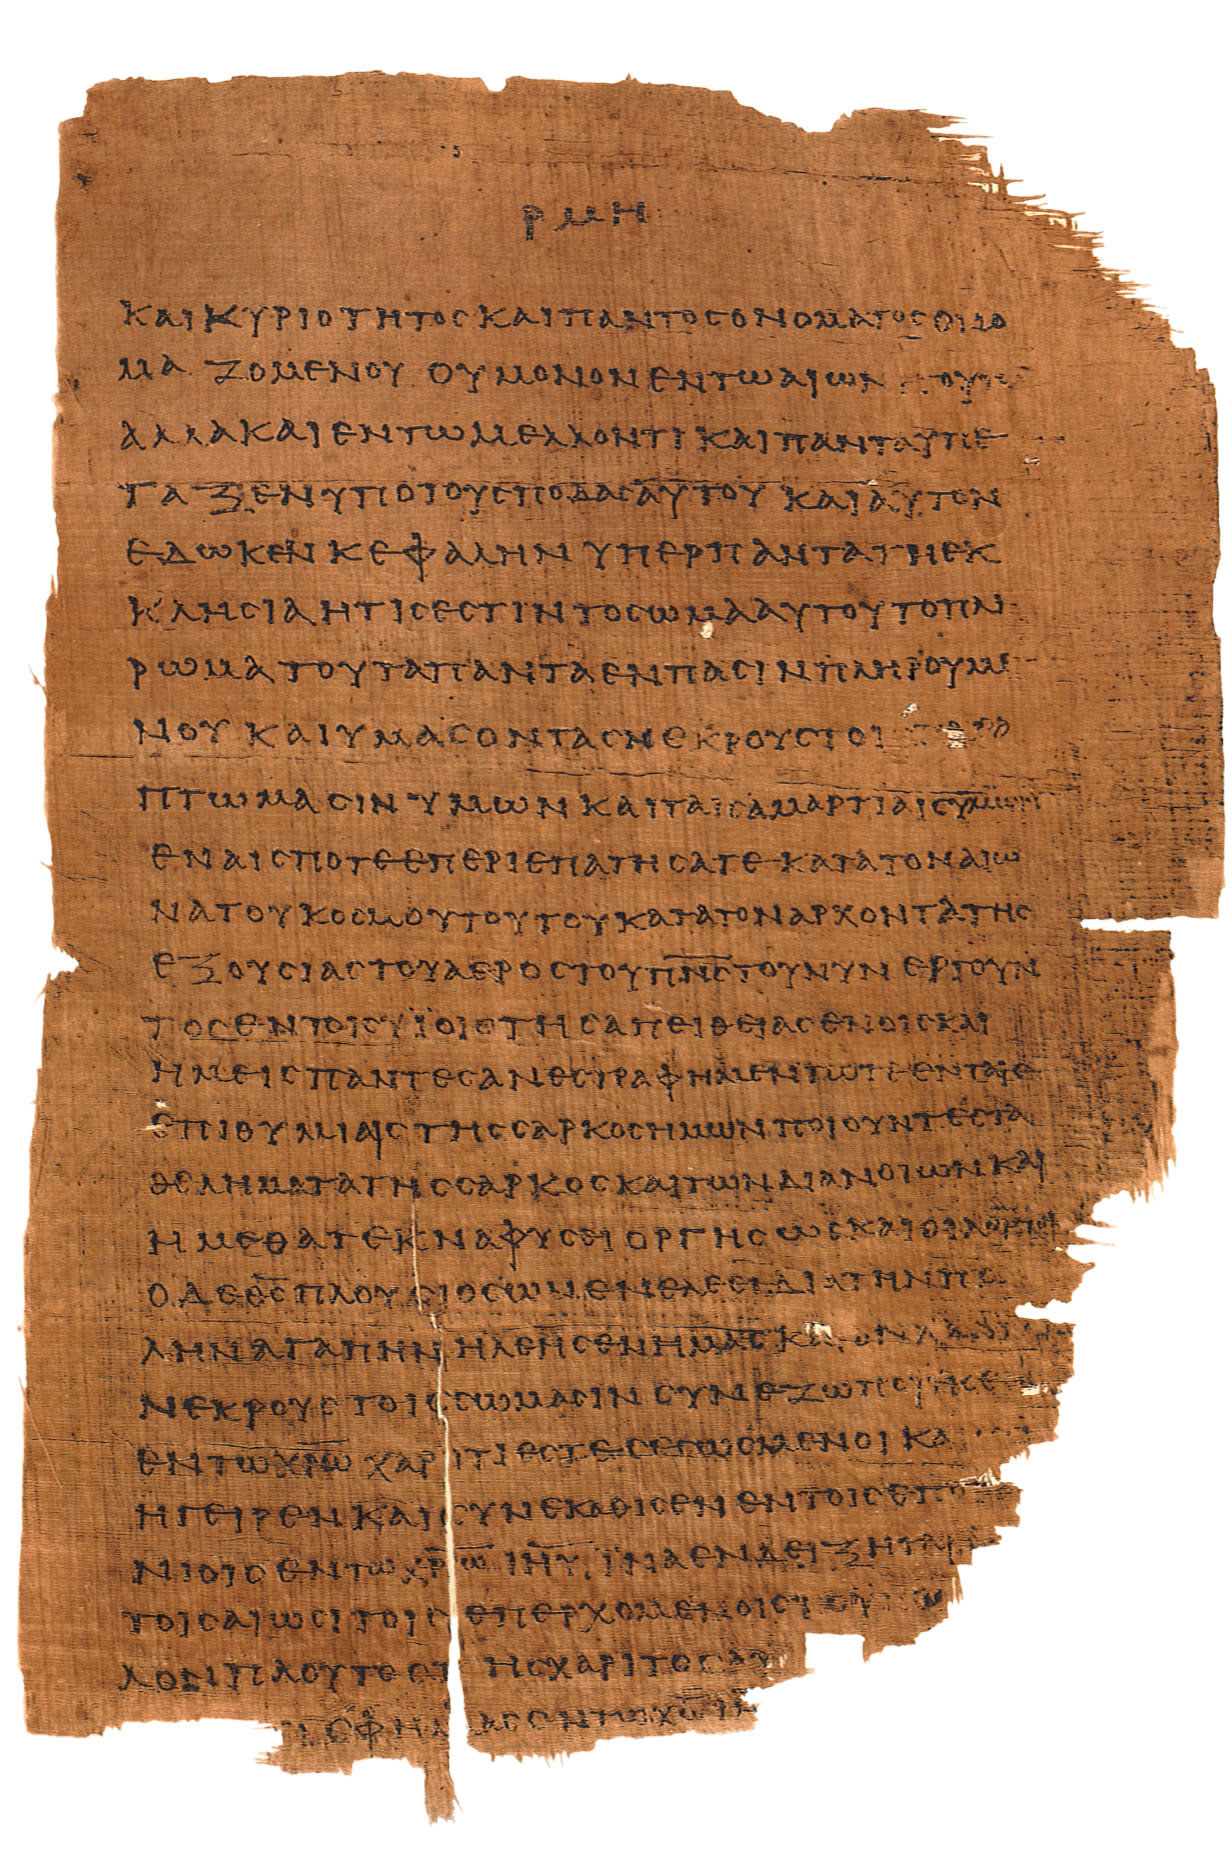 ΡΜΗ
ΚΑΙ ΚΥΡΙΟΤΗΤΟϹ ΚΑΙ ΠΑΝΤΟϹ ΟΝΟΜΑΤΟϹ
ΜΑΖΟΜΕΝΟΥ ΟΥ ΜΟΝΟΝ ΕΝ ΤΩ ΑΙΩΝ ΤΟΥΤ
ΑΛΛΑ ΚΑΙ ΕΝ ΤΩ ΜΕΛΛΟΝΤΙ ΚΑΙ ΠΑΝΤΑ ΥΠΕ
ΤΑΞΕΝ ΥΠΟ ΤΟΥϹ ΠΟΔΑϹ ΑΥΤΟΥ ΚΑΙ ΑΥΤΟΝ
ΕΔΩΚΕΝ ΚΕΦΑΛΗΝ ΥΠΕΡ ΠΑΝΤΑ ΤΗ ΕΚ
ΚΛΗϹΙΑ ΗΤΙϹ ΕϹΤΙΝ ΤΟ ϹΩΜΑ ΑΥΤΟΥ ΤΟ ΠΛ
ΡΩΜΑ ΤΟΥ ΤΑ ΠΑΝΤΑ ΕΝ ΠΑϹΙΝ ΠΛΗΡΟΥΜΕ
ΝΟΥ ΚΑΙ ΥΜΑϹ ΟΝΤΑϹ ΝΕΚΡΟΥϹ ΤΟΙ
ΠΤΩΜΑϹΙΝ ΥΜΩΝ ΚΑΙ ΤΑΙϹ ΑΜΑΡΤΙΑΙϹ ΥΜΩΝ
ΕΝ ΑΙϹ ΠΟΤΕ ΕΠΕΡΙΕΠΑΤΗϹΑΤΕ ΚΑΤΑ ΤΟΝ ΑΙΩ
ΝΑ ΤΟΥ ΚΟϹΜΟΥ ΤΟΥΤΟΥ ΚΑΤΑ ΤΟΝ ΑΡΧΟΝΤΑ ΤΗϹ
ΕΞΟΥϹΙΑϹ ΤΟΥ ΑΕΡΟϹ ΤΟΥ Π̅Ν̅Ϲ̅ ΤΟΥ ΝΥΝ ΕΡΓΟΥΝ
ΤΟϹ ΕΝ ΤΟΙϹ ΥΪΟΙϹ ΤΗϹ ΑΠΕΙΘΕΙΑϹ ΕΝ ΟΙϹ ΚΑΙ
ΗΜΕΙϹ ΠΑΝΤΕϹ ΑΝΕϹΤΡΑΦΗΜΕΝ ΠΟΤΕ ΕΝ ΤΑΙϹ
ΕΠΙΘΥΜΙΑΙϹ ΤΗϹ ϹΑΡΚΟϹ ΗΜΩΝ ΠΟΙΟΥΝΤΕϹ ΤΑ
ΘΕΛΗΜΑΤΑ ΤΗϹ ϹΑΡΚΟϹ ΚΑΙ ΤΩΝ ΔΙΑΝΟΙΩΝ ΚΑΙ
ΗΜΕΘΑ ΤΕΚΝΑ ΦΥϹΕΙ ΟΡΓΗϹ ΩϹ ΚΑΙ ΟΙ ΛΟΙΠΟΙ
Ο ΔΕ Θ̅Ϲ̅ ΠΛΟΥϹΙΟϹ ΩΝ ΕΝ ΕΛΕΕΙ ΔΙΑ ΤΗΝ Π
ΛΗΝ ΑΓΑΠΗΝ ΗΛΕΗϹΕΝ ΗΜΑϹ ΚΑΙ ΟΝΤΑϹ
ΝΕΚΡΟΥϹ ΤΟΙϹ ϹΩΜΑϹΙΝ ϹΥΝΕΖΩΠΟΙΗϹΕ
ΕΝ ΤΩ Χ̅Ρ̅Ω̅ ΧΑΡΙΤΙ ΕϹΤΕ ϹΕϹΩϹΜΕΝΟΙ ΚΑ
ΗΓΕΙΡΕΝ ΚΑΙ ϹΥΝΕΚΑΘΙϹΕΝ ΕΝ ΤΟΙϹ ΕΠ
ΝΙΟΙϹ ΕΝ ΤΩ Χ̅Ρ̅Ω̅ Ι̅Η̅Υ̅ ΪΝΑ ΕΝΔΕΙΞΗΤΑΙ
ΤΟΙϹ ΑΙΩϹΙ ΤΟΙϹ ΕΠΕΡΧΟΜΕΝΟΙϹ
ΛΟΝ ΠΛΟΥΤΟϹ Τ ΗϹ ΧΑΡΙΤΟϹ ΑΥ
ΕΦ ΗΜΑϹ ΕΝ ΤΩ Χ̅Ω̅ Ι